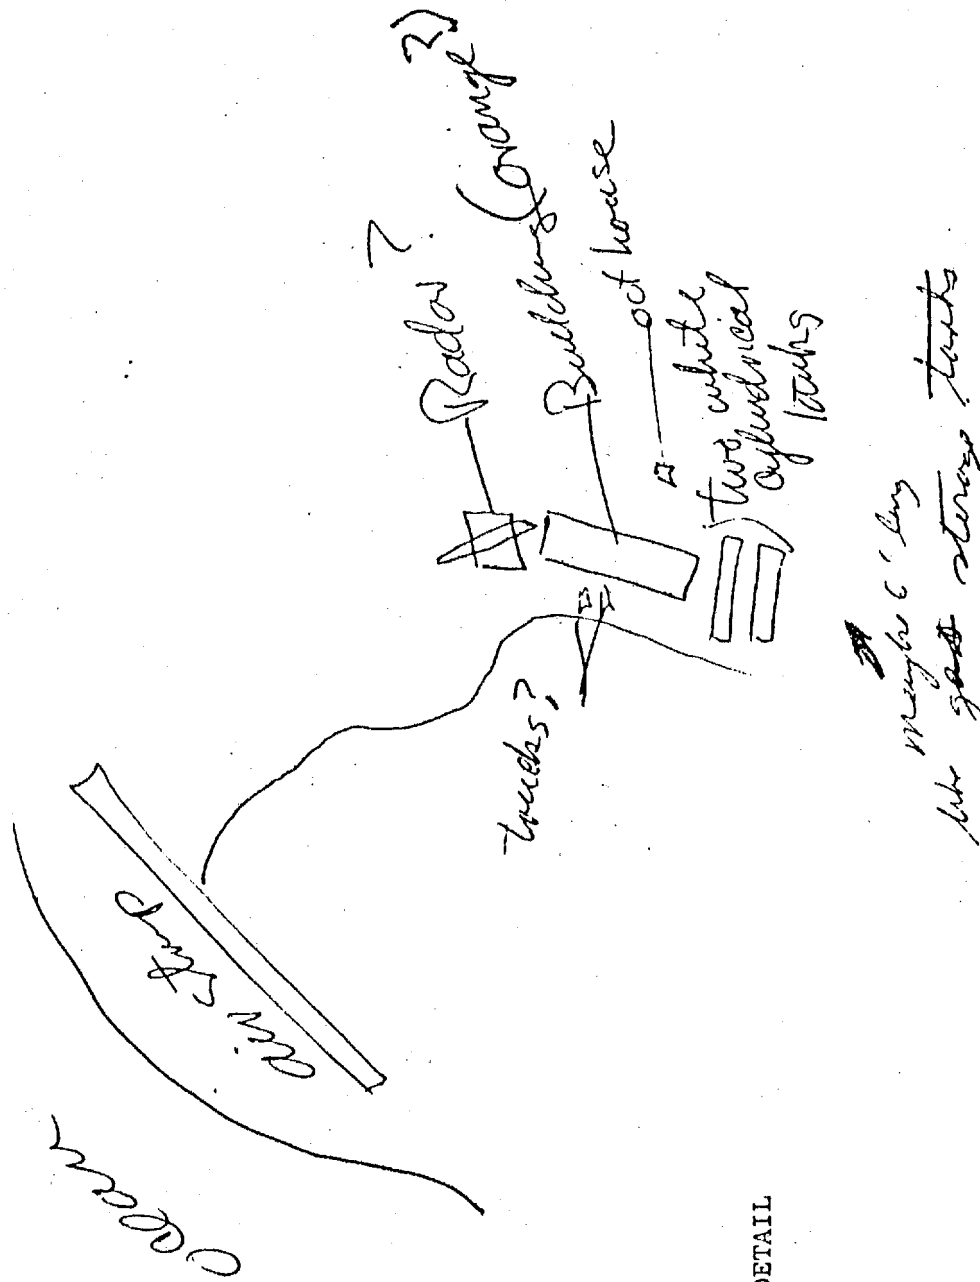 Ocean
air strip
trucks?
Radar?
Building (orange?)
out house
two white
cylindrical
tanks
maybe 6' long
like gas storage tanks
DETAIL